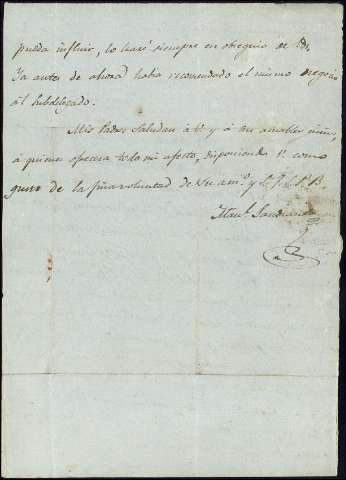 pueda influir, lo haré siempre en obsequio de Vd.
Ya antes de ahora habia recomendado el mismo negocio
al Subdelegado.
Mis Padres saludan á V. y á su amable
á quienes ofrecerá todo mi afecto, disponiendo V. como
guste de la fina voluntad de su am.º y S. S. Q. S. M. B.
Man.l